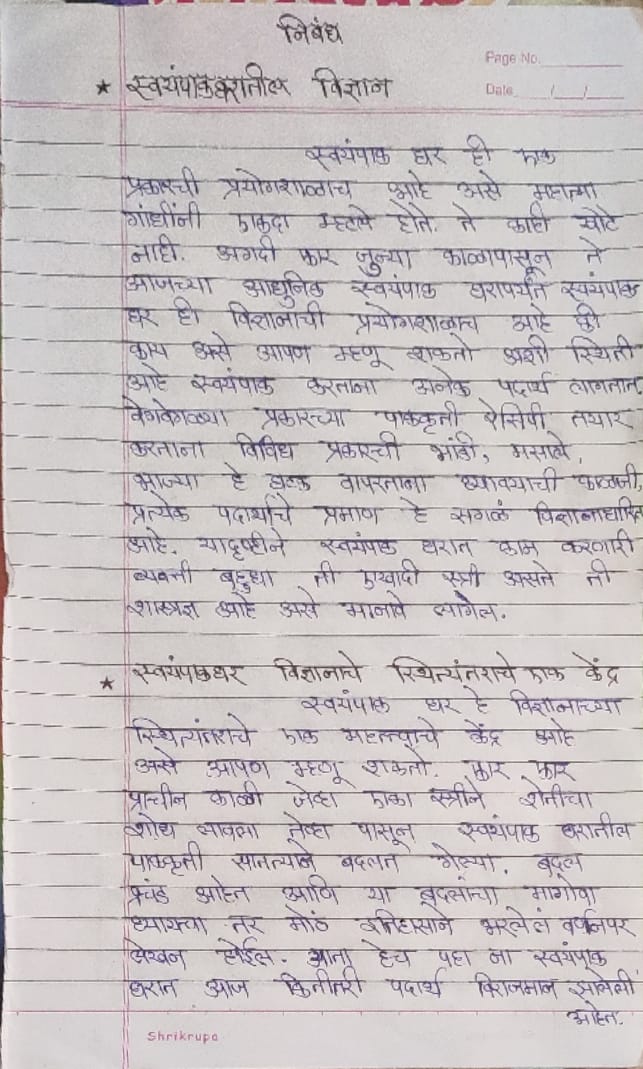 निबंध
Page No.
* स्वयंपाकघरातील विज्ञान
Date / /
स्वयंपाक घर ही एक
प्रकारची प्रयोगशाळाच आहे असे महात्मा
गांधींनी एकदा म्हटले होते. ते काही खोटे
नाही. अगदी फार जुन्या काळापासून ते
आजच्या आधुनिक स्वयंपाक घरापर्यंत स्वयंपाक
घर ही विज्ञानाची प्रयोगशाळाच आहे की
काय असे आपण म्हणू शकतो अशी स्थिती
आहे स्वयंपाक करताना अनेक पदार्थ लागतात
वेगवेगळ्या प्रकारच्या पाककृती रेसिपी तयार
करताना विविध प्रकारची भांडी, मसाले,
भाज्या हे घटक वापरताना घ्यावयाची काळजी,
प्रत्येक पदार्थाचे प्रमाण हे सगळं विज्ञानाधारित
आहे. यादृष्टीने स्वयंपाक घरात काम करणारी
व्यक्ती बहुधा ती एखादी स्त्री असते ती
शास्त्रज्ञ आहे असे मानावे लागेल.
* स्वयंपाकघर विज्ञानाचे स्थित्यंतराचे एक केंद्र
स्वयंपाक घर हे विज्ञानाच्या
स्थित्यंतराचे एक महत्त्वाचे केंद्र आहे
असे आपण म्हणू शकतो. फार फार
प्राचीन काळी जेव्हा एका स्त्रीने शेतीचा
शोध लावला तेव्हा पासून स्वयंपाक घरातील
पाककृती सातत्याने बदलत गेल्या. बदल
प्रचंड आहेत आणि या बदलांचा मागोवा
घ्यायचा तर मोठं इतिहासाने भरलेलं वर्णनपर
लेखन होईल. आता हेच पहा ना स्वयंपाक
घरात आज कितीतरी पदार्थ विराजमान झालेली
आहेत.
Shrikrupa